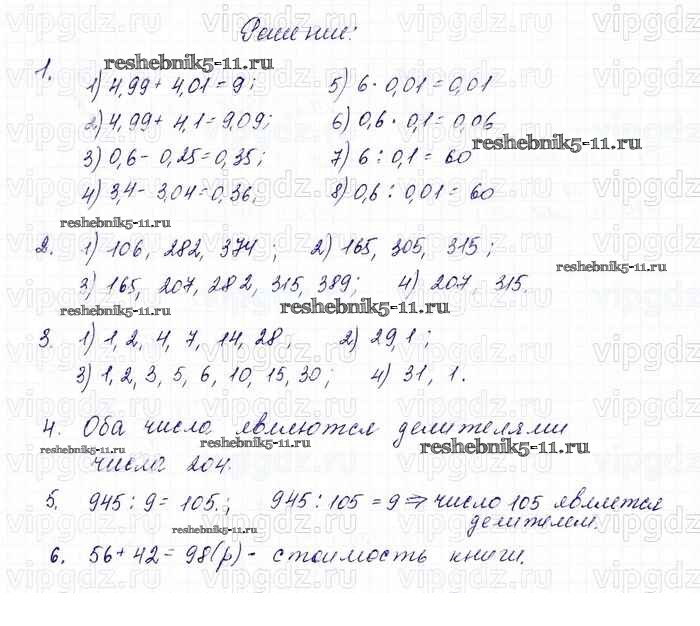 Решение:
1.
1) 4,99 + 4,01 = 9; 5) 6 · 0,01 = 0,01
2) 4,99 + 4,1 = 9,09; 6) 0,6 · 0,1 = 0,06
3) 0,6 - 0,25 = 0,35; 7) 6 : 0,1 = 60
4) 3,4 - 3,04 = 0,36; 8) 0,6 : 0,01 = 60
2. 1) 106, 282, 374; 2) 165, 305, 315;
3) 165, 207, 282, 315, 389; 4) 207, 315.
3. 1) 1, 2, 4, 7, 14, 28, 2) 29, 1;
3) 1, 2, 3, 5, 6, 10, 15, 30; 4) 31, 1.
4. Оба число являются делителями
числа 204.
5. 945 : 9 = 105.; 945 : 105 = 9 ⇒ число 105 является
делителем.
6. 56 + 42 = 98 (р) - стоимость книги.
reshebnik5-11.ru
reshebnik5-11.ru
reshebnik5-11.ru
reshebnik5-11.ru
reshebnik5-11.ru
reshebnik5-11.ru
reshebnik5-11.ru
reshebnik5-11.ru
reshebnik5-11.ru
reshebnik5-11.ru
vipgdz.ru